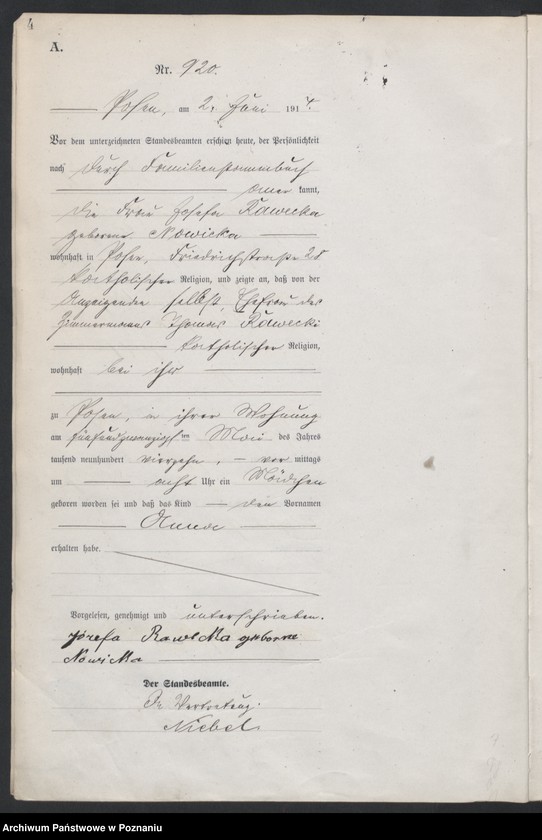 A.
Nr. 920.
Posen, am 2. Juni 1914.
Vor dem unterzeichneten Standesbeamten erschien heute, der Persönlichkeit
nach durch Familienstammbuch
aner kannt,
die Frau Josefa Rawicka
geborene Nowicka
wohnhaft in Posen, Friedrichstraße 28
katholischer Religion, und zeigte an, daß von der
Anzeigenden selbst, Ehefrau des
Zimmermanns Thomas Rawicki
katholischer Religion,
wohnhaft bei ihr
zu Posen, in ihrer Wohnung
am fünfundzwanzigsten Mai des Jahres
tausend neunhundert vierzehn, vor mittags
um acht Uhr ein Mädchen
geboren worden sei und daß das Kind den Vornamen
Anna
erhalten habe.
Vorgelesen, genehmigt und unterschrieben.
Józefa Rawicka geborne
Nowicka
Der Standesbeamte.
In Vertretung.
Niebel
Archiwum Państwowe w Poznaniu